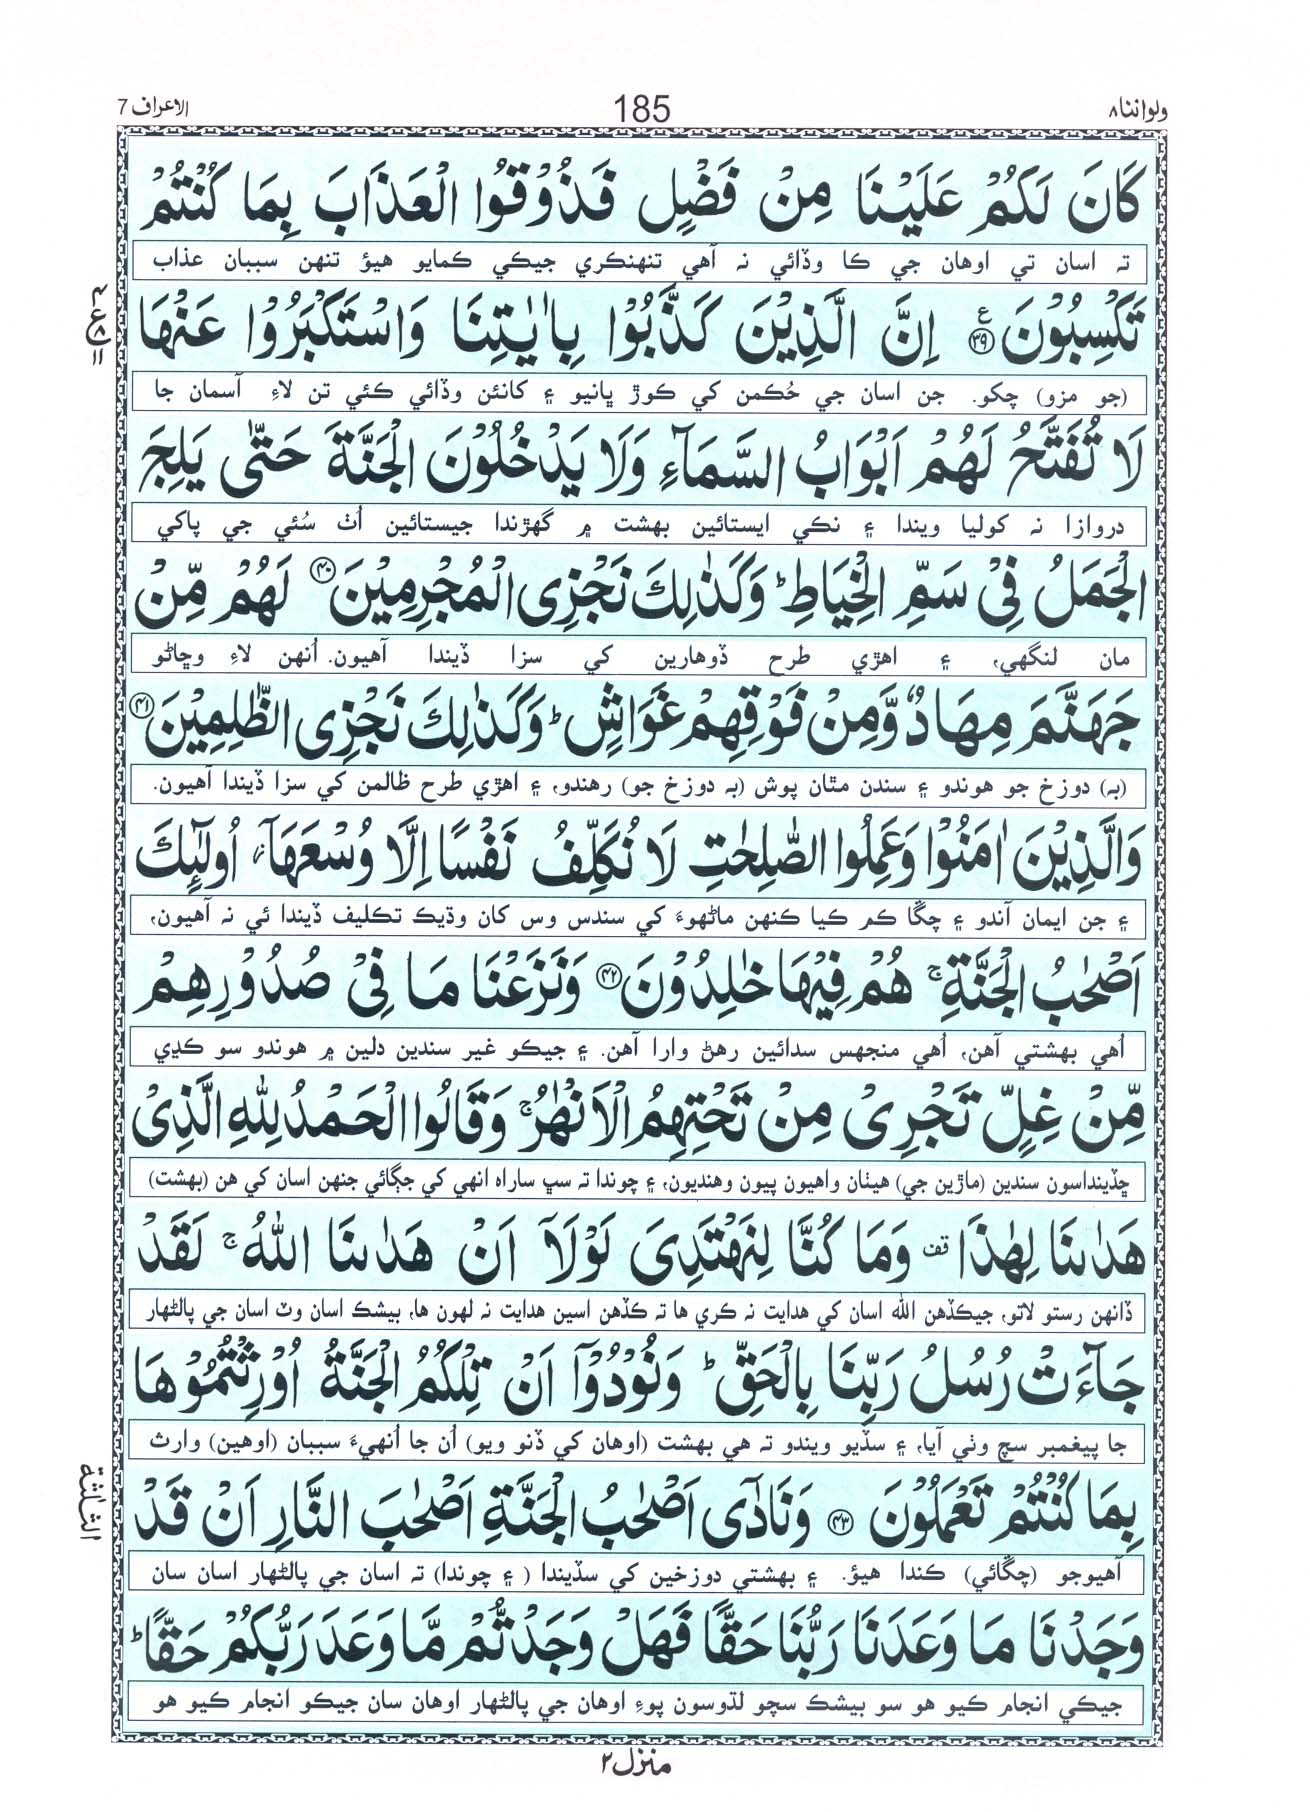 ولواننا ٨
185
الاعراف 7
كَانَ لَكُمْ عَلَيْنَا مِنْ فَضْلٍ فَذُوْقُوا الْعَذَابَ بِمَا كُنْتُمْ
ته اسان تي اوهان جي ڪا وڏائي نه آهي تنهنڪري جيڪي ڪمايو هيؤ تنهن سببان عذاب
تَكْسِبُوْنَ ۧ ﴿٣٩﴾ اِنَّ الَّذِيْنَ كَذَّبُوْا بِاٰيٰتِنَا وَاسْتَكْبَرُوْا عَنْهَا
(جو مزو) چکو. جن اسان جي حُڪمن کي ڪوڙ ڀانيو ۽ کانئن وڏائي ڪئي تن لاءِ آسمان جا
لَا تُفَتَّحُ لَهُمْ اَبْوَابُ السَّمَآءِ وَلَا يَدْخُلُوْنَ الْجَنَّةَ حَتّٰى يَلِجَ
دروازا نه کوليا ويندا ۽ نڪي ايستائين بهشت ۾ گهڙندا جيستائين اُٺ سُئي جي پاکي
الْجَمَلُ فِيْ سَمِّ الْخِيَاطِ ؕ وَكَذٰلِكَ نَجْزِى الْمُجْرِمِيْنَ ﴿٤٠﴾ لَهُمْ مِّنْ
مان لنگهي، ۽ اهڙي طرح ڏوهارين کي سزا ڏيندا آهيون. اُنهن لاءِ وڇاڻو
جَهَنَّمَ مِهَادٌ وَّمِنْ فَوْقِهِمْ غَوَاشٍ ؕ وَكَذٰلِكَ نَجْزِى الظّٰلِمِيْنَ ﴿٤١﴾
(به) دوزخ جو هوندو ۽ سندن مٿان پوش (به دوزخ جو) رهندو، ۽ اهڙي طرح ظالمن کي سزا ڏيندا آهيون.
وَالَّذِيْنَ اٰمَنُوْا وَعَمِلُوا الصّٰلِحٰتِ لَا نُكَلِّفُ نَفْسًا اِلَّا وُسْعَهَاۤ ۥ اُولٰٓئِكَ
۽ جن ايمان آندو ۽ چڱا ڪم ڪيا ڪنهن ماڻهوءَ کي سندس وس کان وڌيڪ تڪليف ڏيندا ئي نه آهيون،
اَصْحٰبُ الْجَنَّةِ ۚ هُمْ فِيْهَا خٰلِدُوْنَ ﴿٤٢﴾ وَنَزَعْنَا مَا فِيْ صُدُوْرِهِمْ
اُهي بهشتي آهن، اُهي منجهس سدائين رهڻ وارا آهن. ۽ جيڪو غير سندين دلين ۾ هوندو سو ڪڍي
مِّنْ غِلٍّ تَجْرِيْ مِنْ تَحْتِهِمُ الْاَنْهٰرُ ۚ وَقَالُوا الْحَمْدُ لِلّٰهِ الَّذِيْ
ڇڏينداسون سندين (ماڙين جي) هيٺان واهيون پيون وهنديون، ۽ چوندا ته سڀ ساراه انهي کي جڳائي جنهن اسان کي هن (بهشت)
هَدٰىنَا لِهٰذَا ۫ وَمَا كُنَّا لِنَهْتَدِيَ لَوْلَآ اَنْ هَدٰىنَا اللّٰهُ ۚ لَقَدْ
ڏانهن رستو لاتو، جيڪڏهن الله اسان کي هدايت نه ڪري ها ته ڪڏهن اسين هدايت نه لهون ها، بيشڪ اسان وٽ اسان جي پالڻهار
جَآءَتْ رُسُلُ رَبِّنَا بِالْحَقِّ ؕ وَنُوْدُوْٓا اَنْ تِلْكُمُ الْجَنَّةُ اُوْرِثْتُمُوْهَا
جا پيغمبر سچ وٺي آيا، ۽ سڏيو ويندو ته هي بهشت (اوهان کي ڏنو ويو) اُن جا اُنهيءَ سببان (اوهين) وارث
بِمَا كُنْتُمْ تَعْمَلُوْنَ ﴿٤٣﴾ وَنَادٰٓى اَصْحٰبُ الْجَنَّةِ اَصْحٰبَ النَّارِ اَنْ قَدْ
آهيو جو (چڱائي) ڪندا هيؤ. ۽ بهشتي دوزخين کي سڏيندا ( ۽ چوندا) ته اسان جي پالڻهار اسان سان
وَجَدْنَا مَا وَعَدَنَا رَبُّنَا حَقًّا فَهَلْ وَجَدْتُّمْ مَّا وَعَدَ رَبُّكُمْ حَقًّا ؕ
جيڪي انجام ڪيو هو سو بيشڪ سچو لڌوسون پوءِ اوهان جي پالڻهار اوهان سان جيڪو انجام ڪيو هو
الثلثة
منزل ٢